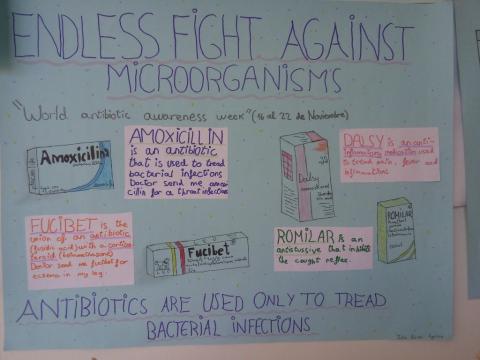 ENDLESS FIGHT AGAINST
MICROORGANISMS
"World antibiotic awareness week" (16 al 22 de Noviembre)
Amoxicilin
AMOXICILLIN
is an antibiotic
that is used to tread
bacterial infections
Doctor send me amoxi
cillin for a throat infections
Dalsy
DALSY is an anti-
inflammatory medication used
to tread pain, fever and
inflammations
FUCIBET is the
union off an antibiotic
(fusidic acid) with a cortico
teroid (betametasone)
Doctor send me fucibet for
eczema in my leg.
Fucibet
ROMILAR is an
antistussive that inhibits
the caught reflex.
ROMILAR
ANTIBIOTICS ARE USED ONLY TO TREAD
BACTERIAL INFECTIONS